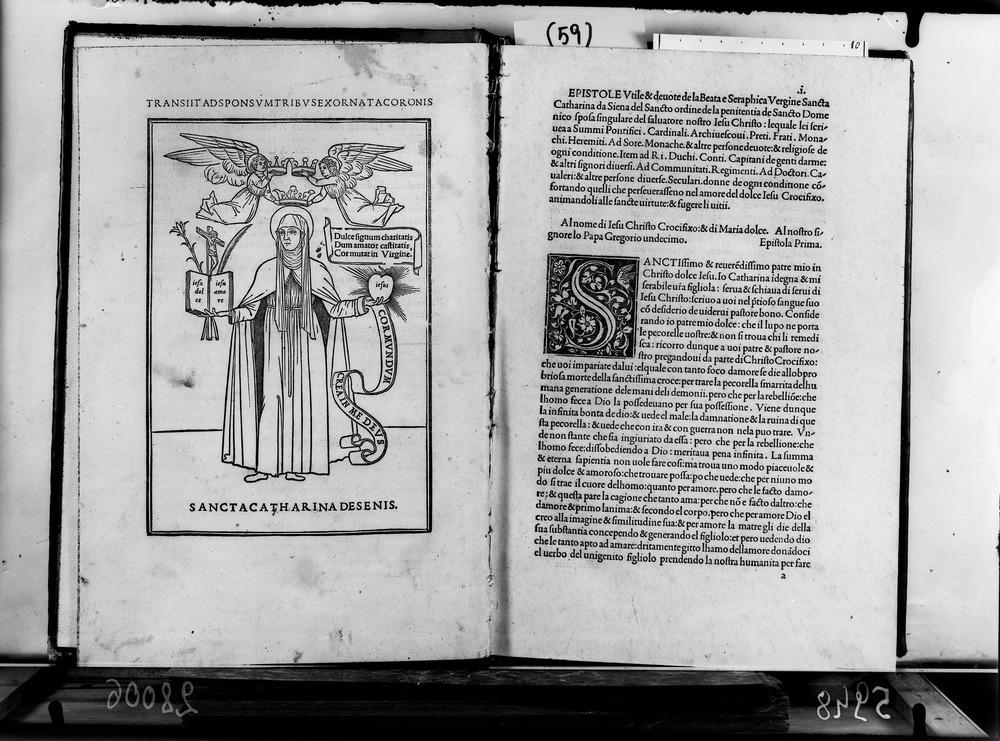 (59)
10
TRANSIIT AD SPONSVM TRIBVS EXORNATA CORONIS
Dulce signum charitatis
Dum amator castitatis,
Cor mutat in Virgine.
iesu
dol
ce
iesu
amo
re
iesus
COR MVNDVM
CREA IN ME DEVS
SANCTA CATHARINA DE SENIS.
.i.
EPISTOLE Vtile & deuote de la Beata e Seraphica Vergine Sancta
Catharina da Siena del Sancto ordine de la penitentia de Sancto Dome
nico sposa singulare del saluatore nostro Iesu Christo: lequale lei scri-
ue a Summi Pontifici. Cardinali. Archiuescoui. Preti. Frati. Mona-
chi. Heremiti. Ad Sore. Monache. & altre persone deuote: & religiose de
ogni conditione. Item ad Ri. Duchi. Conti. Capitani de genti darme:
& altri signori diuersi. Ad Communitati. Regimenti. Ad Doctori. Ca-
ualeri: & altre persone diuerse. Seculari. donne de ogni conditione cō-
fortando quelli che perseuerasseno nel amore del dolce Iesu Crocifixo.
animandoli alle sancte uirtute: & fugere li uitii.
Al nome di Iesu Christo Crocifixo: & di Maria dolce. Al nostro si-
gnore lo Papa Gregorio undecimo. Epistola Prima.
SANCTIssimo & reuerēdissimo patre mio in
Christo dolce Iesu. Io Catharina īdegna & mi
serabile ura figliola: serua & schiaua di serui di
Iesu Christo: scriuo a uoi nel ptioso sangue suo
cō desiderio de uiderui pastore bono. Conside
rando io patre mio dolce: che il lupo ne porta
le pecorelle uostre: & non si troua chi li remedi
sca: ricorro dunque a uoi patre & pastore no-
stro pregandoui da parte di Christo Crocifixo:
che uoi impariate da lui: el quale con tanto foco damore se die allobpro
briosa morte della sanctissima croce: per trare la pecorella smarrita delhu
mana generatione dele mani deli demonii. pero che per la rebelliōe: che
lhomo fece a Dio la possedeuano per sua possessione. Viene dunque
la infinita bonta de dio: & uede el male: la damnatione & la ruina di que
sta pecorella: & uede che con ira & con guerra non nela puo trare. Vn-
de non stante che sia ingiuriato da essa: pero che per la rebellione: che
lhomo fece: dissobediendo a Dio: meritaua pena infinita. La summa
& eterna sapientia non uole fare cosi: ma troua uno modo piaceuole &
piu dolce & amoroso: che trouare possa: po che uede: che per niuno mo
do si trae il cuore delhomo: quanto per amore. pero che le facto damo-
re: & questa pare la cagione che tanto ama: per che nō e facto daltro: che
damore & primo lanima: & secondo el corpo. pero che per amore Dio el
creo alla imagine & similitudine sua: & per amore la matre gli die della
sua substantia concependo & generando el figliolo: et pero uedendo dio
che le tanto apto ad amare: dritamente gitto lhamo dellamore donādoci
el uerbo del unigenito figliolo prendendo la nostra humanita per fare
a
28006
5948